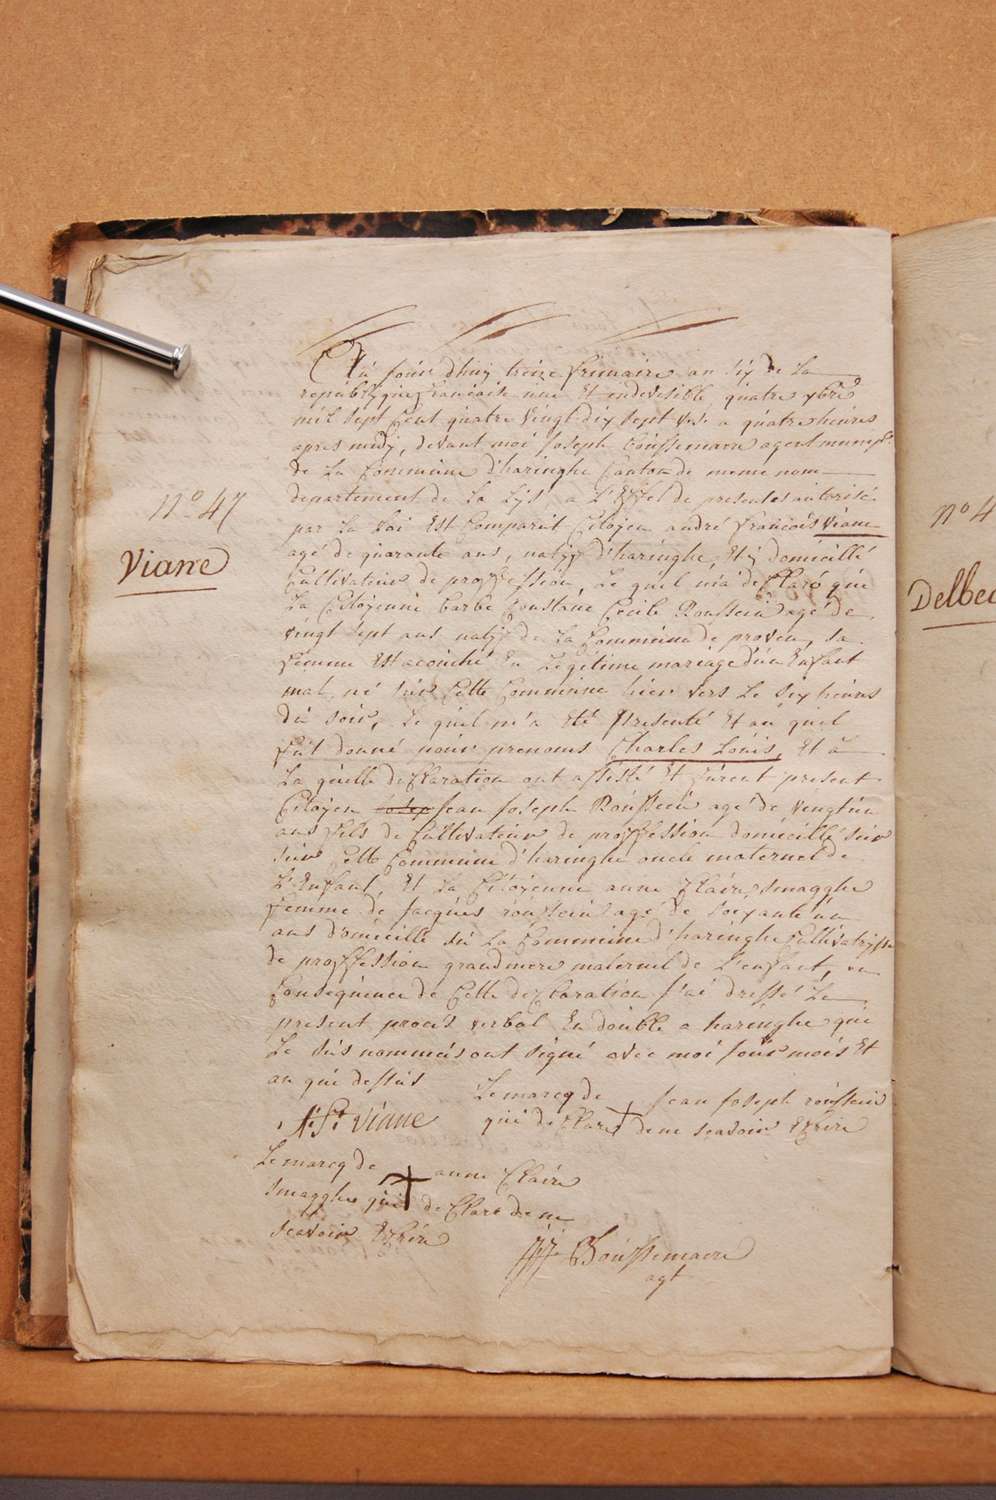 n° 47
Viane
Au jour d'huy treize frimaire an six de La
republique francaise une Et indevisible quatre xbre
mil sept Cent quatre vingt dix sept v.s. a quatre heures
apres midy, devant moi Joseph Bousfemaere agent municpl
de La Commune d'haringhe Canton de meme nom
departement de La Lys a L'Effet de presente autorisé
par La Loi Est Comparut Citoyen andré francois Viane
agé de quarante ans, natif d'haringhe, Et y domicillé
Cultivateur de proffession, Le quel m'a declaré que
La Citoÿenne barbe Constance Cecile Rousseeu agé de
vingt sept ans natif de La Commune de proven, sa
femme Est acouché En Legitime mariage d'un Enfant
mal, né sur Cette Commune hier vers Le six heures
du soir, Le quel m'a été presenté Et au quel
fut donné pour prenoms Charles Louis, Et à
La quelle declaration ont assisté Et furent present
Citoÿen Josep Jean Joseph Rousseeu agé de vingt un
ans fils de Cultivateur de proffession domicillé sur
sur Cette Commune d'haringhe oncle maternel de
L'Enfant, Et La Citoÿenne anne Claire smagghe
femme de Jacques rousseeu agé de soixante un
ans domicillé su La Commune d'haringhe Cultivatrisse
de proffession grandmere maternel de L'enfant, en
Consequence de Cette declaration j'ai dressé Le
present proces verbal En double a haringhe que
Le sus nommeis ont signé avec moi jour mois Et
an que dessus
Le marcq de + Jean Joseph rousseeu
qui declare de ne scavoir Ecrire
A: F: Viane
Le marcq de + anne Claire
smagghe qui declare de ne
scavoir Ecrire
J: J: Boussemaere
agt
n° 4
Delbec